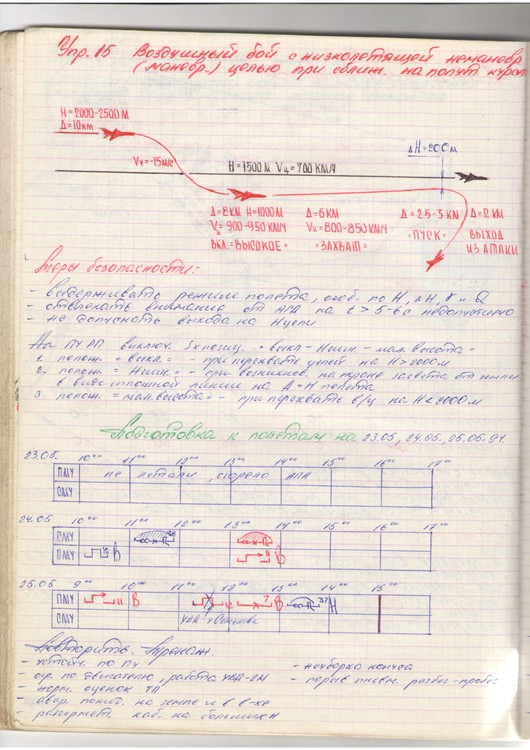 Упр. 15 Воздушный бой с низколетящей неманевр.
(маневр.) целью при сближ. на попут. курсах
Н = 2000-2500 м
Д = 10 км
ΔН = 200 м
Vy = -15 м/с
Н = 1500 м Vц = 700 км/ч
Д = 8 км Н = 1000 м
Vи = 900-950 км/ч
вкл. = высокое =
Д = 6 км
Vи = 800-850 км/ч
= захват =
Д = 2.5-3 км
= пуск =
Д = 2 км
выход
из атаки
Меры безопасности:
- выдерживать режим полета, особ. по Н, ΔН, γ и
- отвлекать внимание от на t > 5-6с недопустимо
- не допускать выхода на Нцели
На ПУРП выключ. 3х позиц. = выкл - Нmin - мал. высота =
1. полож. = выкл. = - при перехвате целей на Н > 2000 м
2. полож. = Нmin. = - при возникнов. на экране засветки от земли
в виде сплошной линии на Д = Н полета
3. полож. = мал. высота = - при перехвате в/ц на Н < 2000 м
Подготовка к полетам на 23.05, 24.05, 25.05-91.
23.05 10⁰⁰ 11⁰⁰ 12⁰⁰ 13⁰⁰ 14⁰⁰ 15⁰⁰ 16⁰⁰ 17⁰⁰
ПМУ не летали, сгорело АПА
СМУ
24.05 10⁰⁰ 11⁰⁰ 12⁰⁰ 13⁰⁰ 14⁰⁰ 15⁰⁰ 16⁰⁰ 17⁰⁰
СМУ
ПМУ
25.05 9⁰⁰ 10⁰⁰ 11⁰⁰ 12⁰⁰ 13⁰⁰ 14⁰⁰ 15⁰⁰
ПМУ 11 В 7 В 37 Н
СМУ
- устойч. по Пу
- по двигателю, работа
- норм. оценок ТП
- авар. покид. на земле и в в-хе
- разгермет. каб. на больших Н
- неуборка конуса
- порыв пневм. разбег-пробег